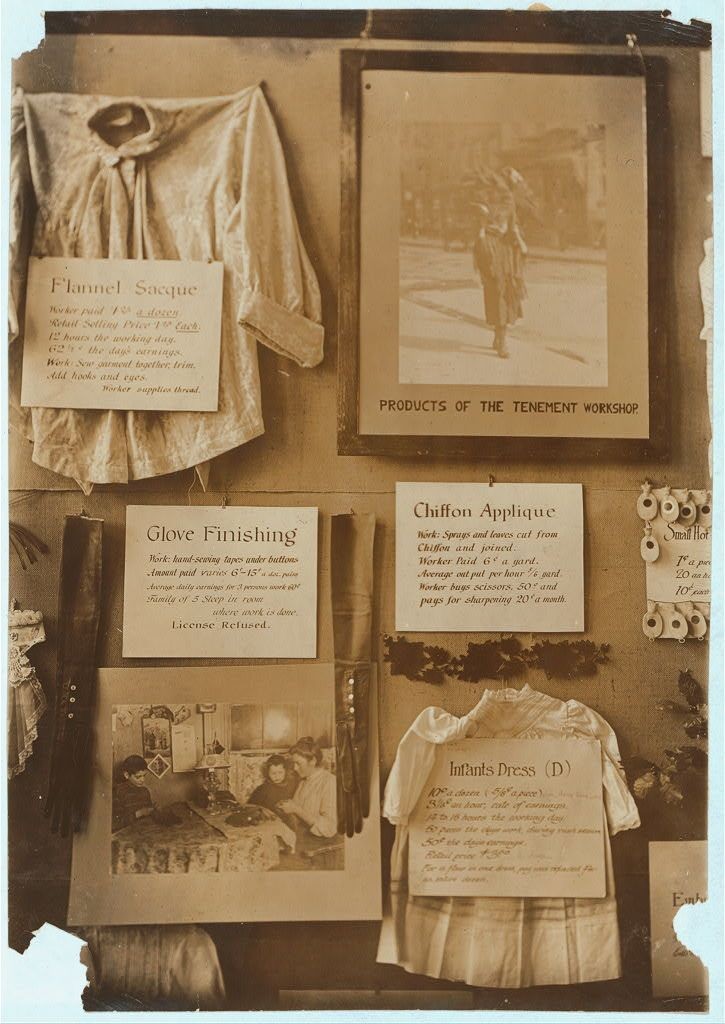 Flannel Sacque
Worker paid a dozen
Retail Selling Price Each.
12 hours the working day.
the day's earnings.
Work: Sew garment together, trim.
Add hooks and eyes.
Worker supplies thread.
PRODUCTS OF THE TENEMENT WORKSHOP.
Glove Finishing
Work: hand-sewing tapes under buttons
Amount paid varies 6¢-15¢ a doz. pairs
Average daily earnings for 3 persons work 60¢
Family of 5 Sleep in room
where work is done.
License Refused.
Chiffon Applique
Work: Sprays and leaves cut from
Chiffon and joined.
Worker Paid 6¢ a yard.
Average out put per hour yard.
Worker buys scissors, 50¢ and
pays for sharpening 20¢ a month.
Small
1¢ a
20 an
10¢
Infants Dress (D)
10¢ a dozen (5/6¢ a piece)
an hour, rate of earnings.
14 to 16 hours the working day.
60 pieces the days work, during rush season
50¢ the days earnings.
Retail price
For a flaw in one dress, pay was refused for
an entire dozen.